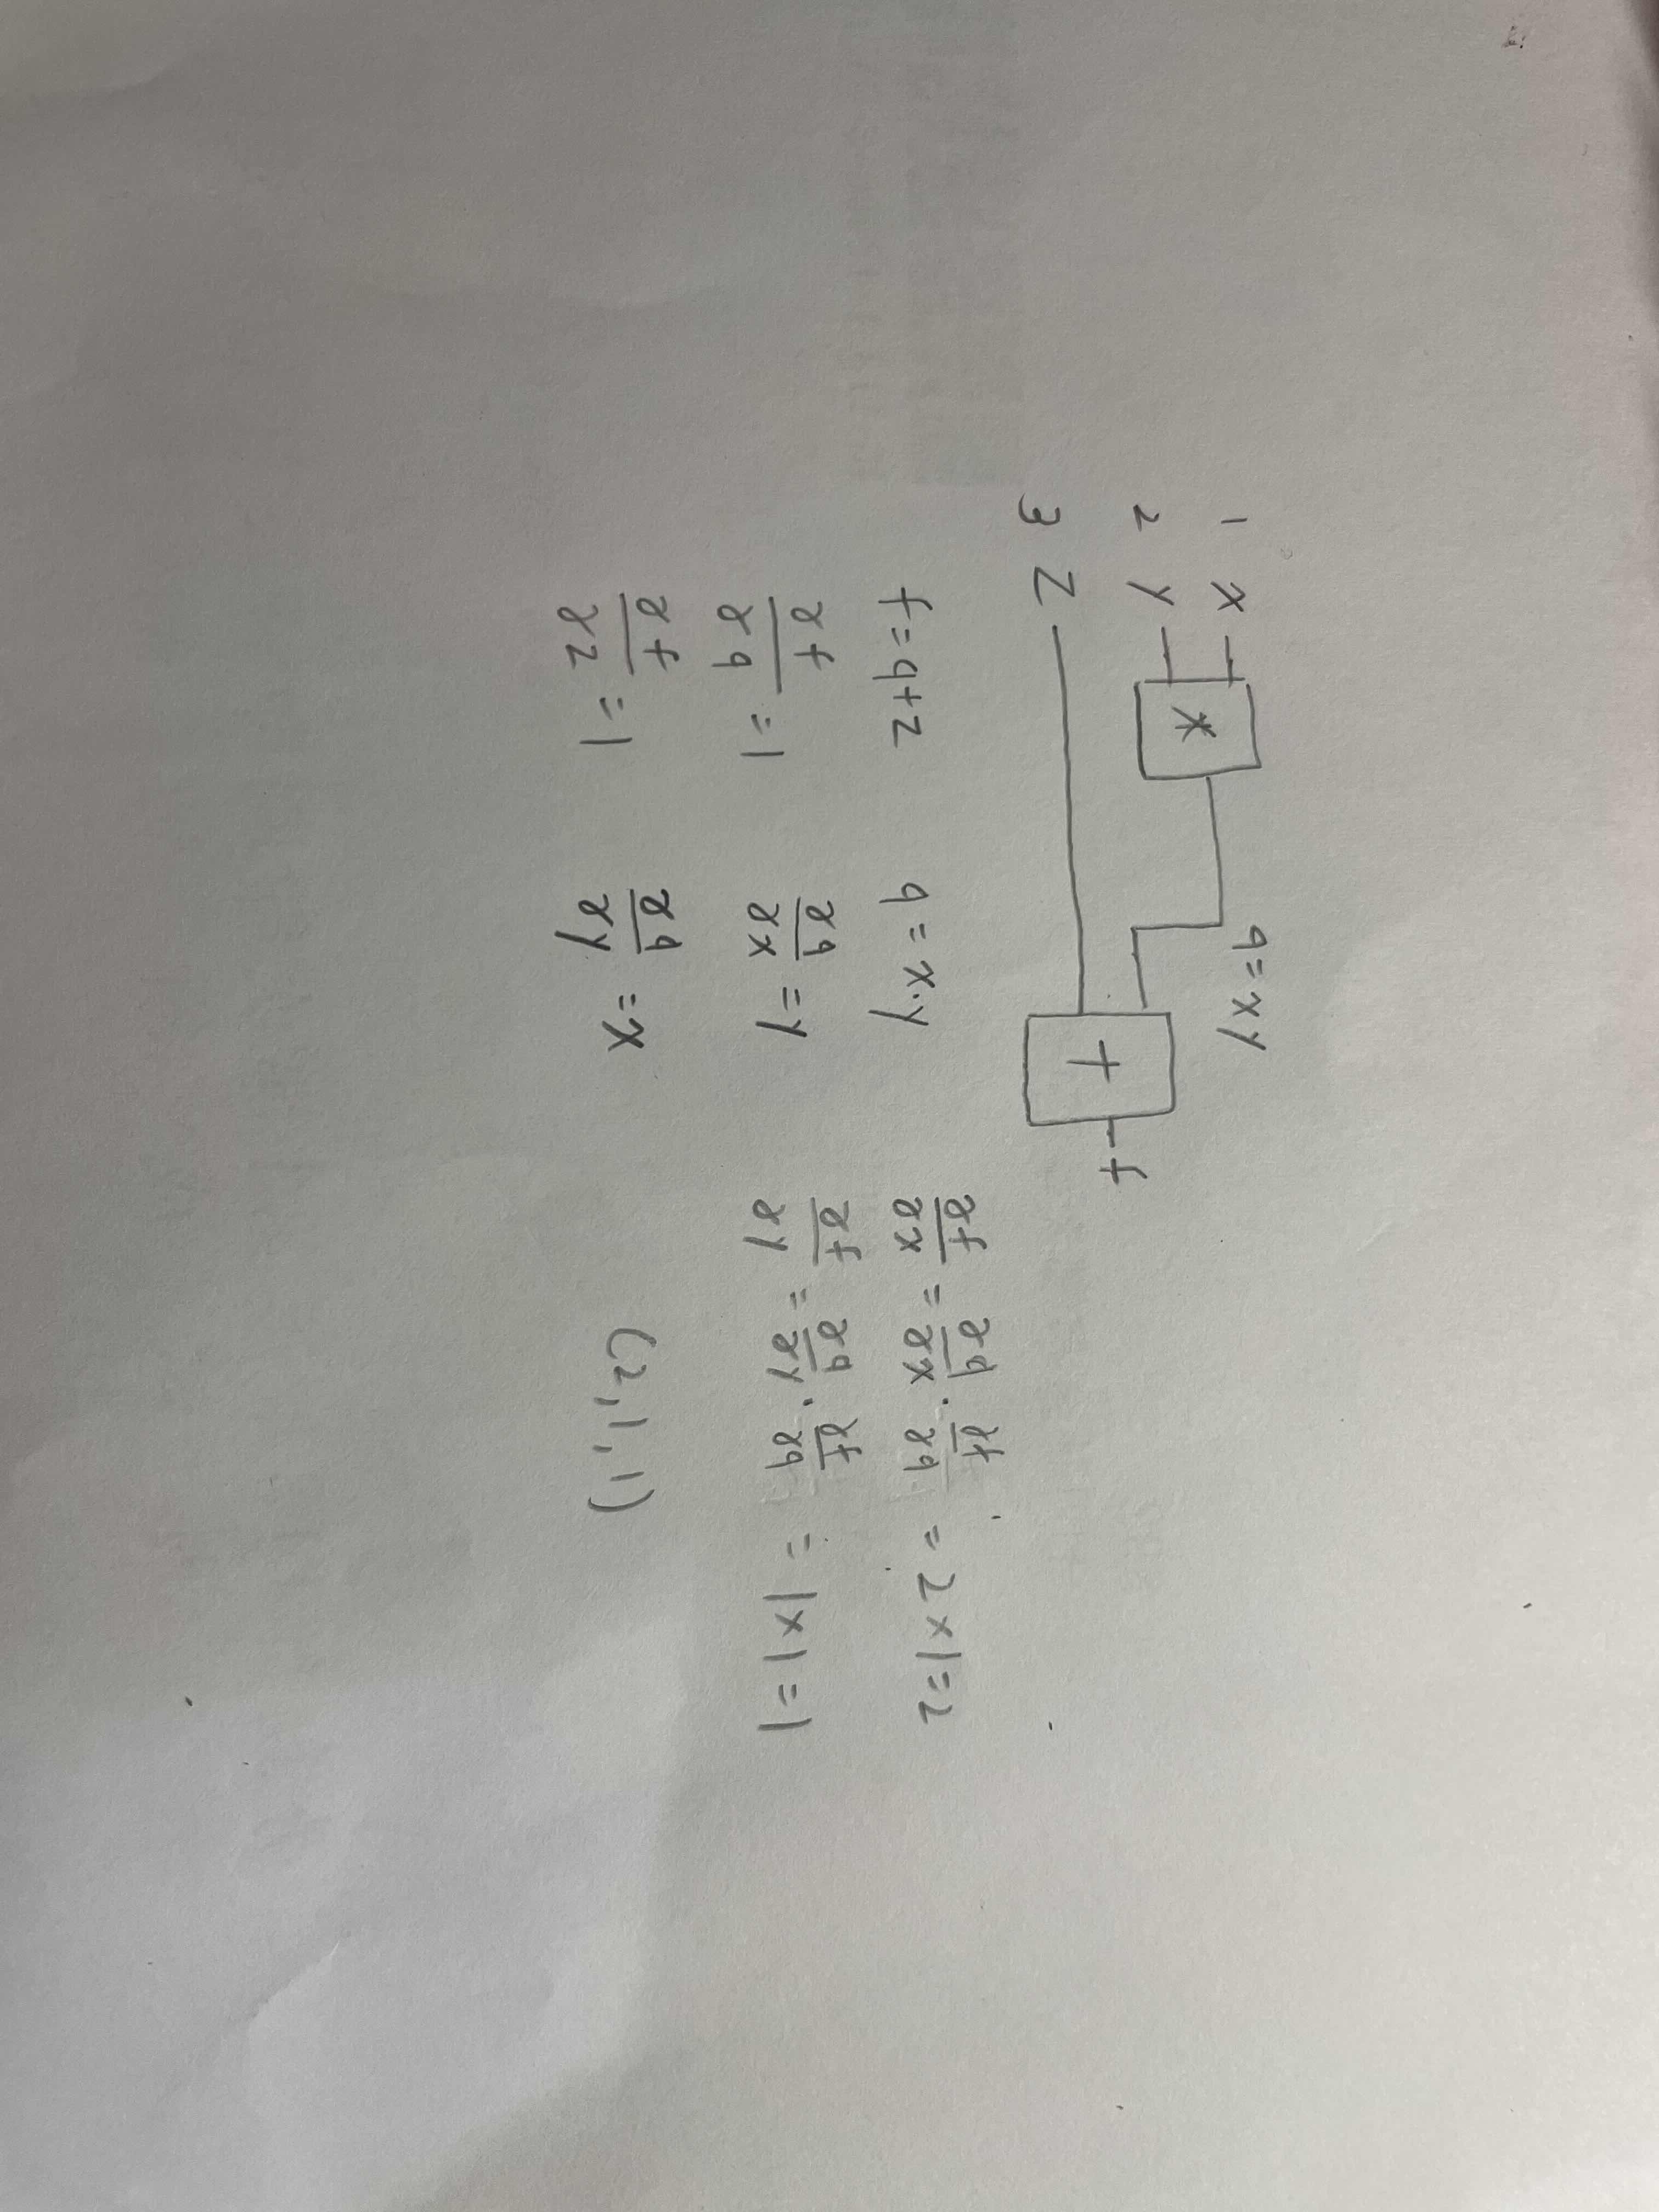 1 x
* q = xy
2 y
+ f
3 z
f = q + z
∂f/∂q = 1
∂f/∂z = 1
q = x·y
∂q/∂x = y
∂q/∂y = x
∂f/∂x = ∂q/∂x · ∂f/∂q = 2 × 1 = 2
∂f/∂y = ∂q/∂y · ∂f/∂q = 1 × 1 = 1
(2, 1, 1)